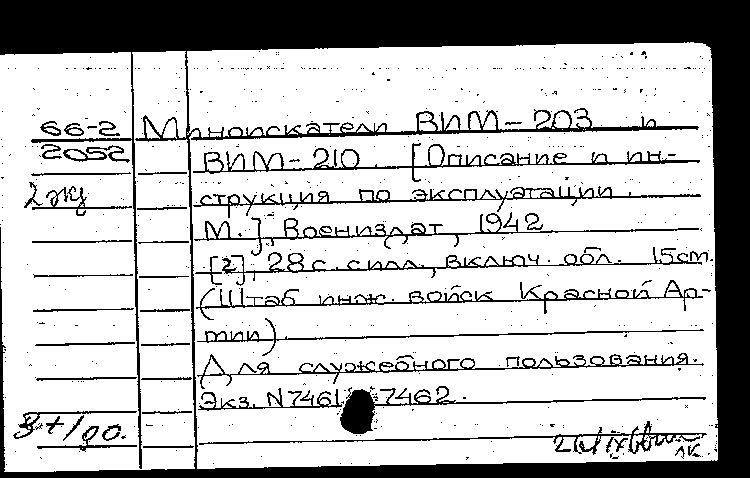 66-2 Миноискатели ВИМ-203 и
2052 ВИМ-210. [Описание и ин-
2 экз струкция по эксплуатации.
М.], Воениздат, 1942
[2], 28 с. с илл., включ. обл. 15 см.
(Штаб инж. войск Красной Ар-
мии)
Для служебного пользования.
Экз. N 7461 7462.